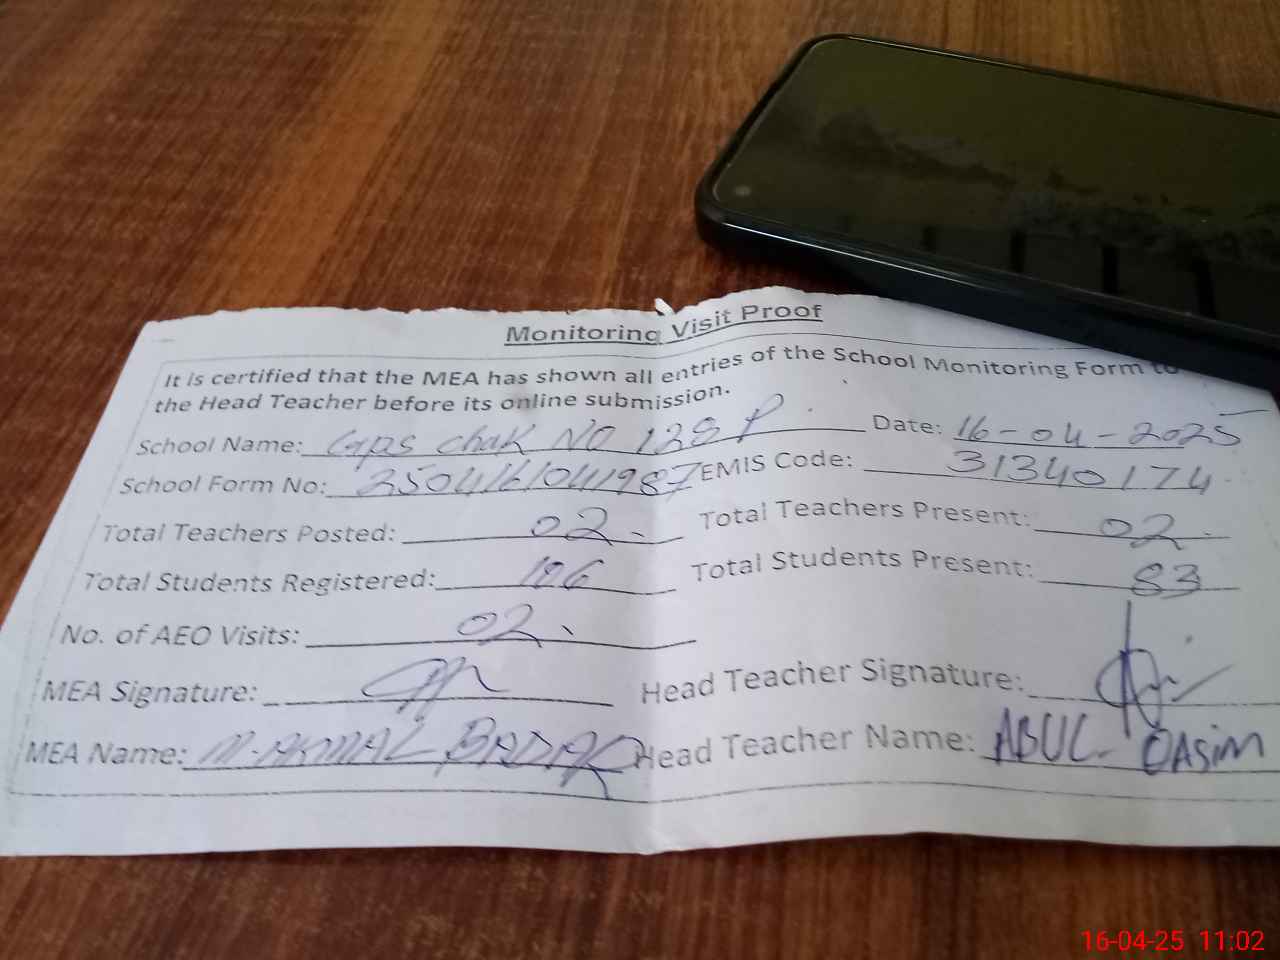 Monitoring Visit Proof
It is certified that the MEA has shown all entries of the School Monitoring Form to
the Head Teacher before its online submission.
School Name: Gps chak NO 128 P Date: 16-04-2025
School Form No: 2504161041987 EMIS Code: 31340174
Total Teachers Posted: 02. Total Teachers Present: 02.
Total Students Registered: 106 Total Students Present: 83
No. of AEO Visits: 02.
MEA Signature: Head Teacher Signature:
MEA Name: M. AKMAL BADAR Head Teacher Name: ABUL QASIM
16-04-25 11:02